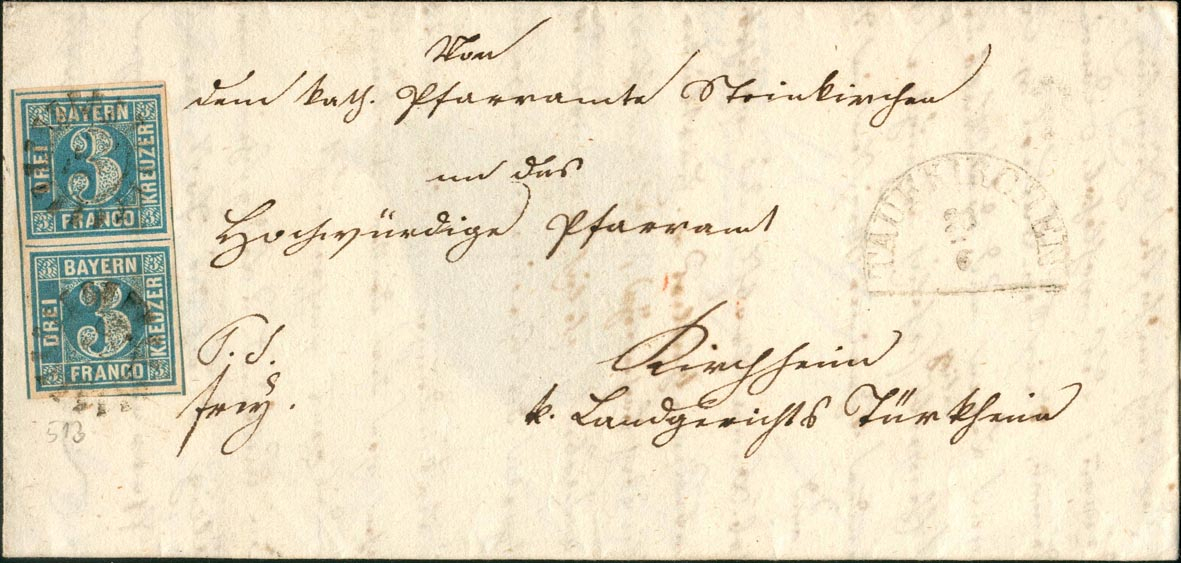 BAYERN
DREI
3
KREUZER
FRANCO
BAYERN
DREI
3
KREUZER
FRANCO
513
Von
dem kath. Pfarramte Steinkirchen
an das
Hochwürdige Pfarramt
TAUFKIRCHEN
Kirchheim
frey.
k. Landgerichts Türkheim